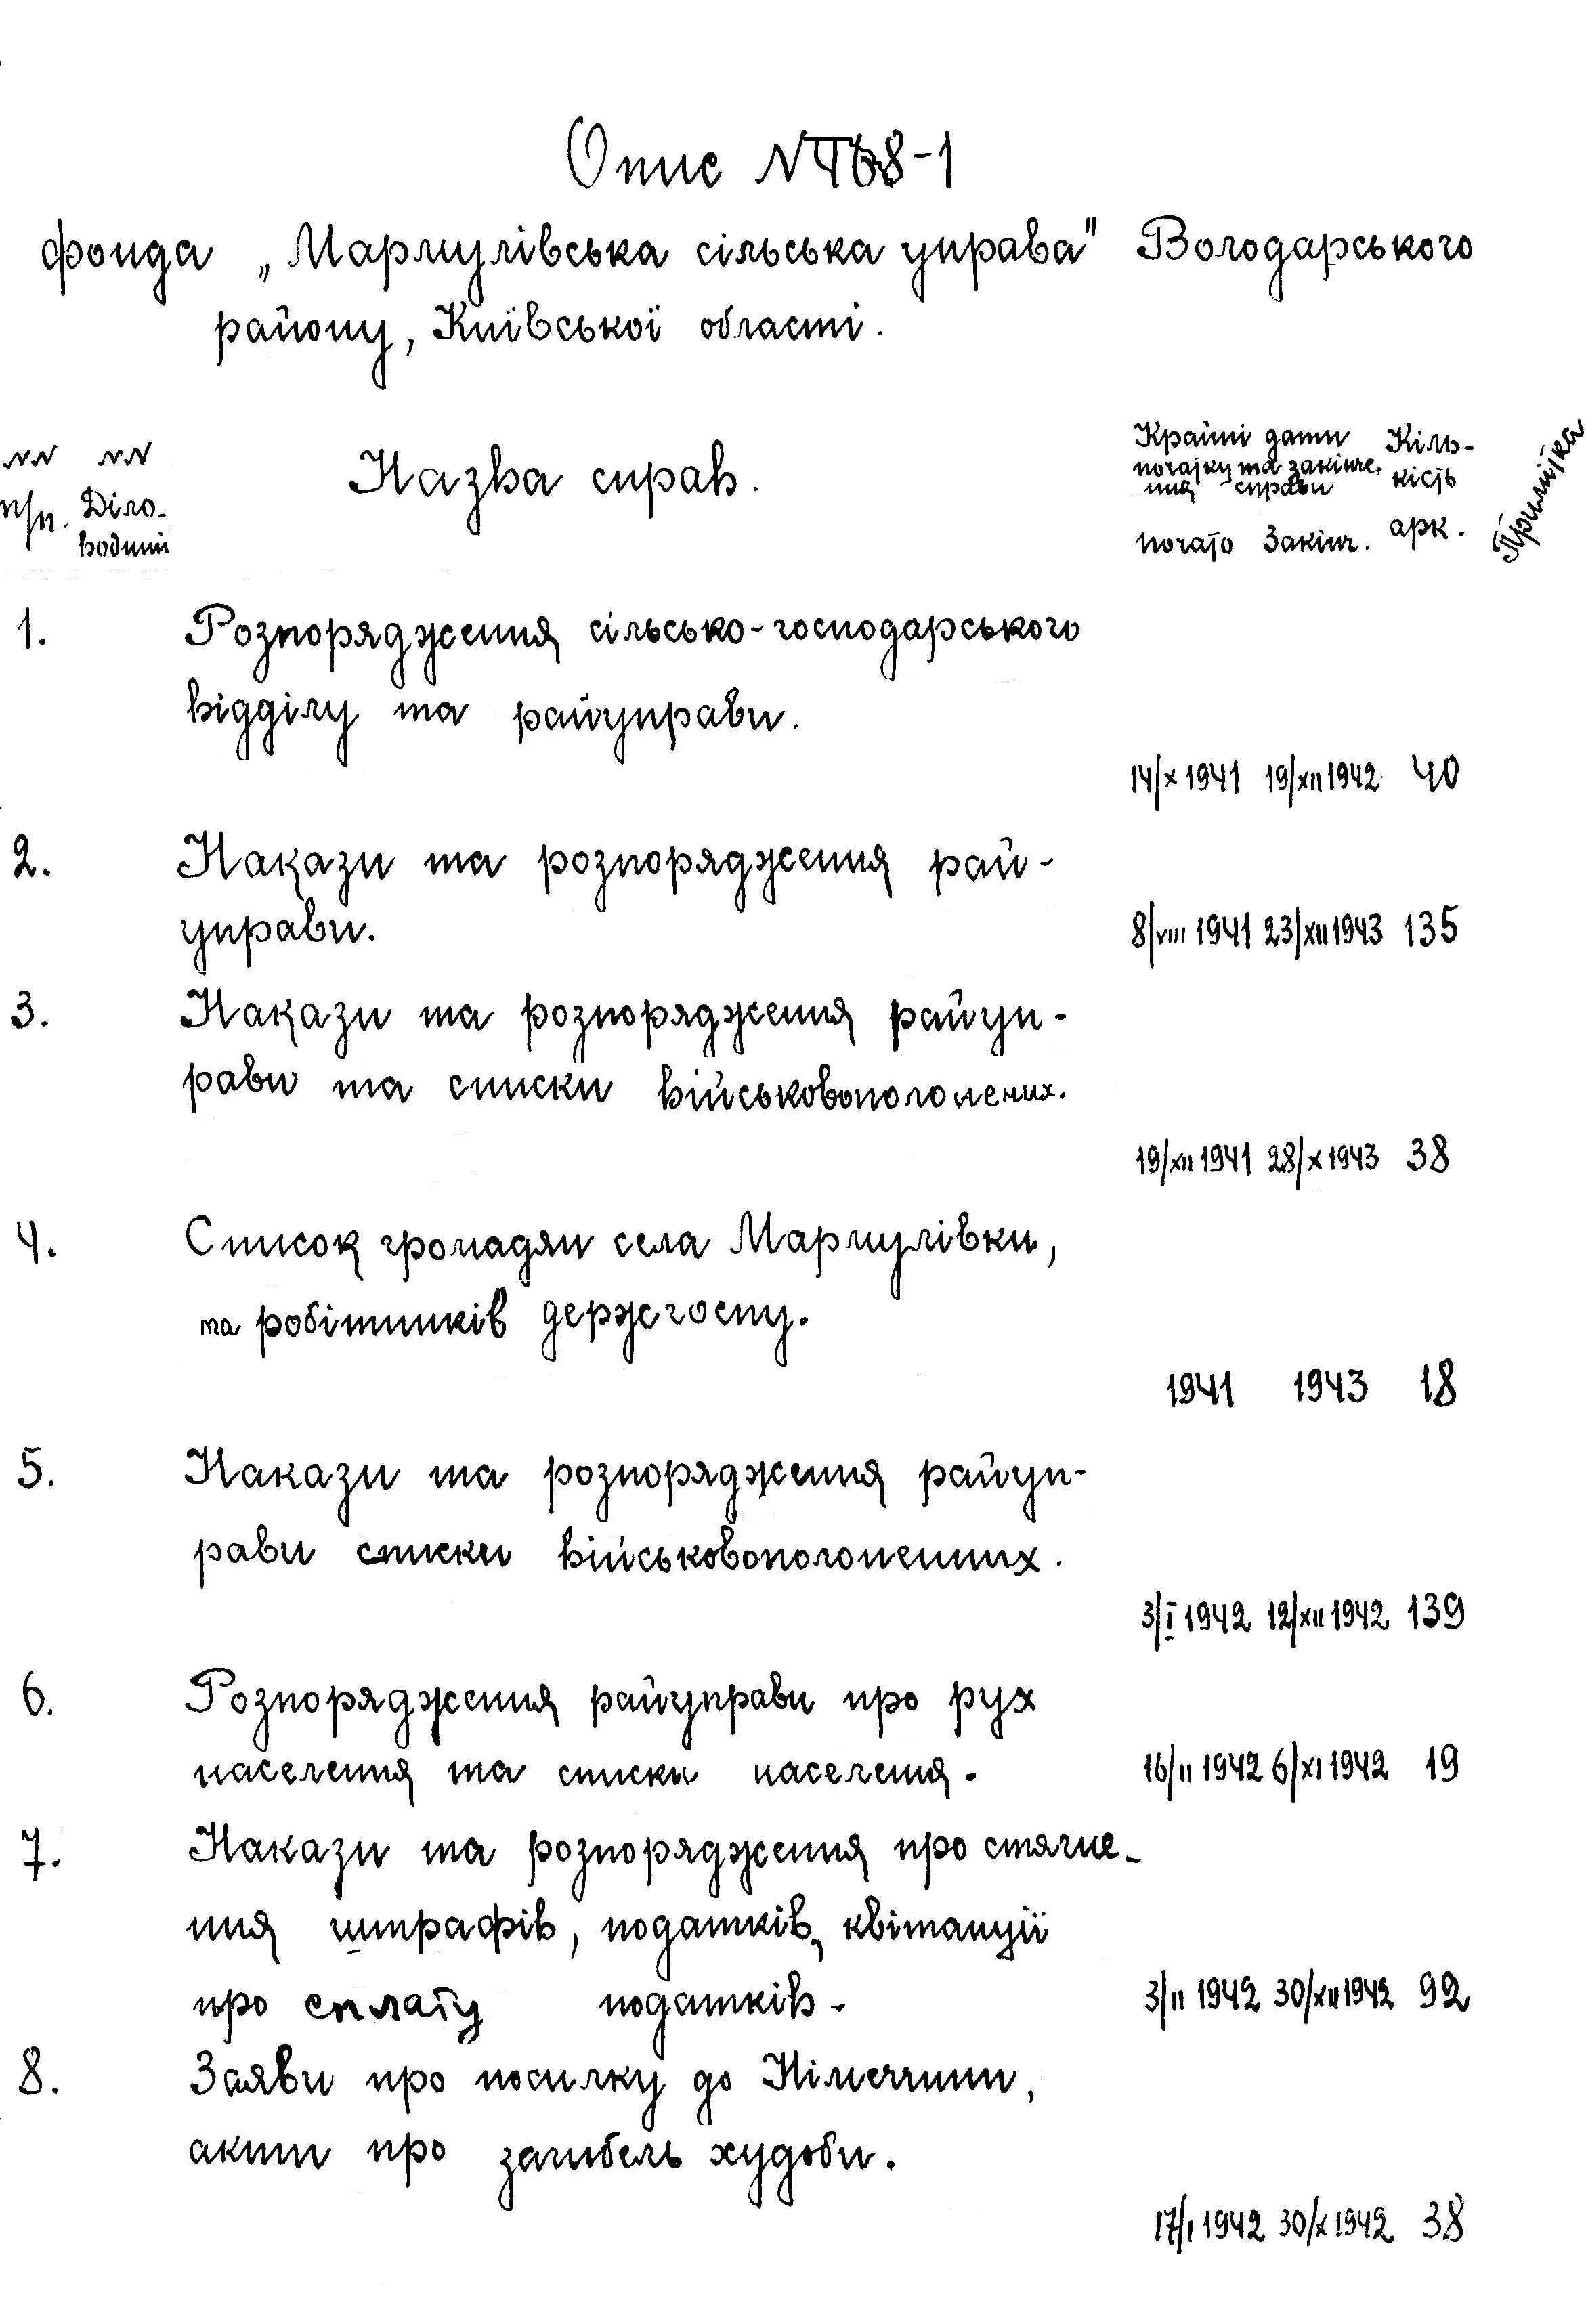 Опис № 4168-1
фонда „Мармулівська сільська управа" Володарського
району, Київської області.
NN NN Назва справ. Крайні дати Кіль- Примітка
п/п. Діло- початку та закінче. кість
водний ння справи арк.
почато Закінч.
1. Розпорядження сільсько-господарського
відділу та райуправи.
14/X 1941 19/XII 1942 40
2. Накази та розпорядження рай-
управи. 8/VIII 1941 23/XII 1943 135
3. Накази та розпорядження райуп-
рави та списки військовополонених.
19/XII 1941 28/X 1943 38
4. Список громадян села Мармулівки,
та робітників держгоспу.
1941 1943 18
5. Накази та розпорядження райуп-
рави списки військовополоненних.
3/I 1942 12/XII 1942 139
6. Розпорядження райуправи про рух
населення та списки населення. 16/II 1942 6/XI 1942 19
7. Накази та розпорядження про стягне-
ння штрафів, податків, квітанції
про сплату податків- 3/II 1942 30/XII 1942 92
8. Заяви про посилку до Німеччини,
акти про загибель худоби.
17/I 1942 30/X 1942 38